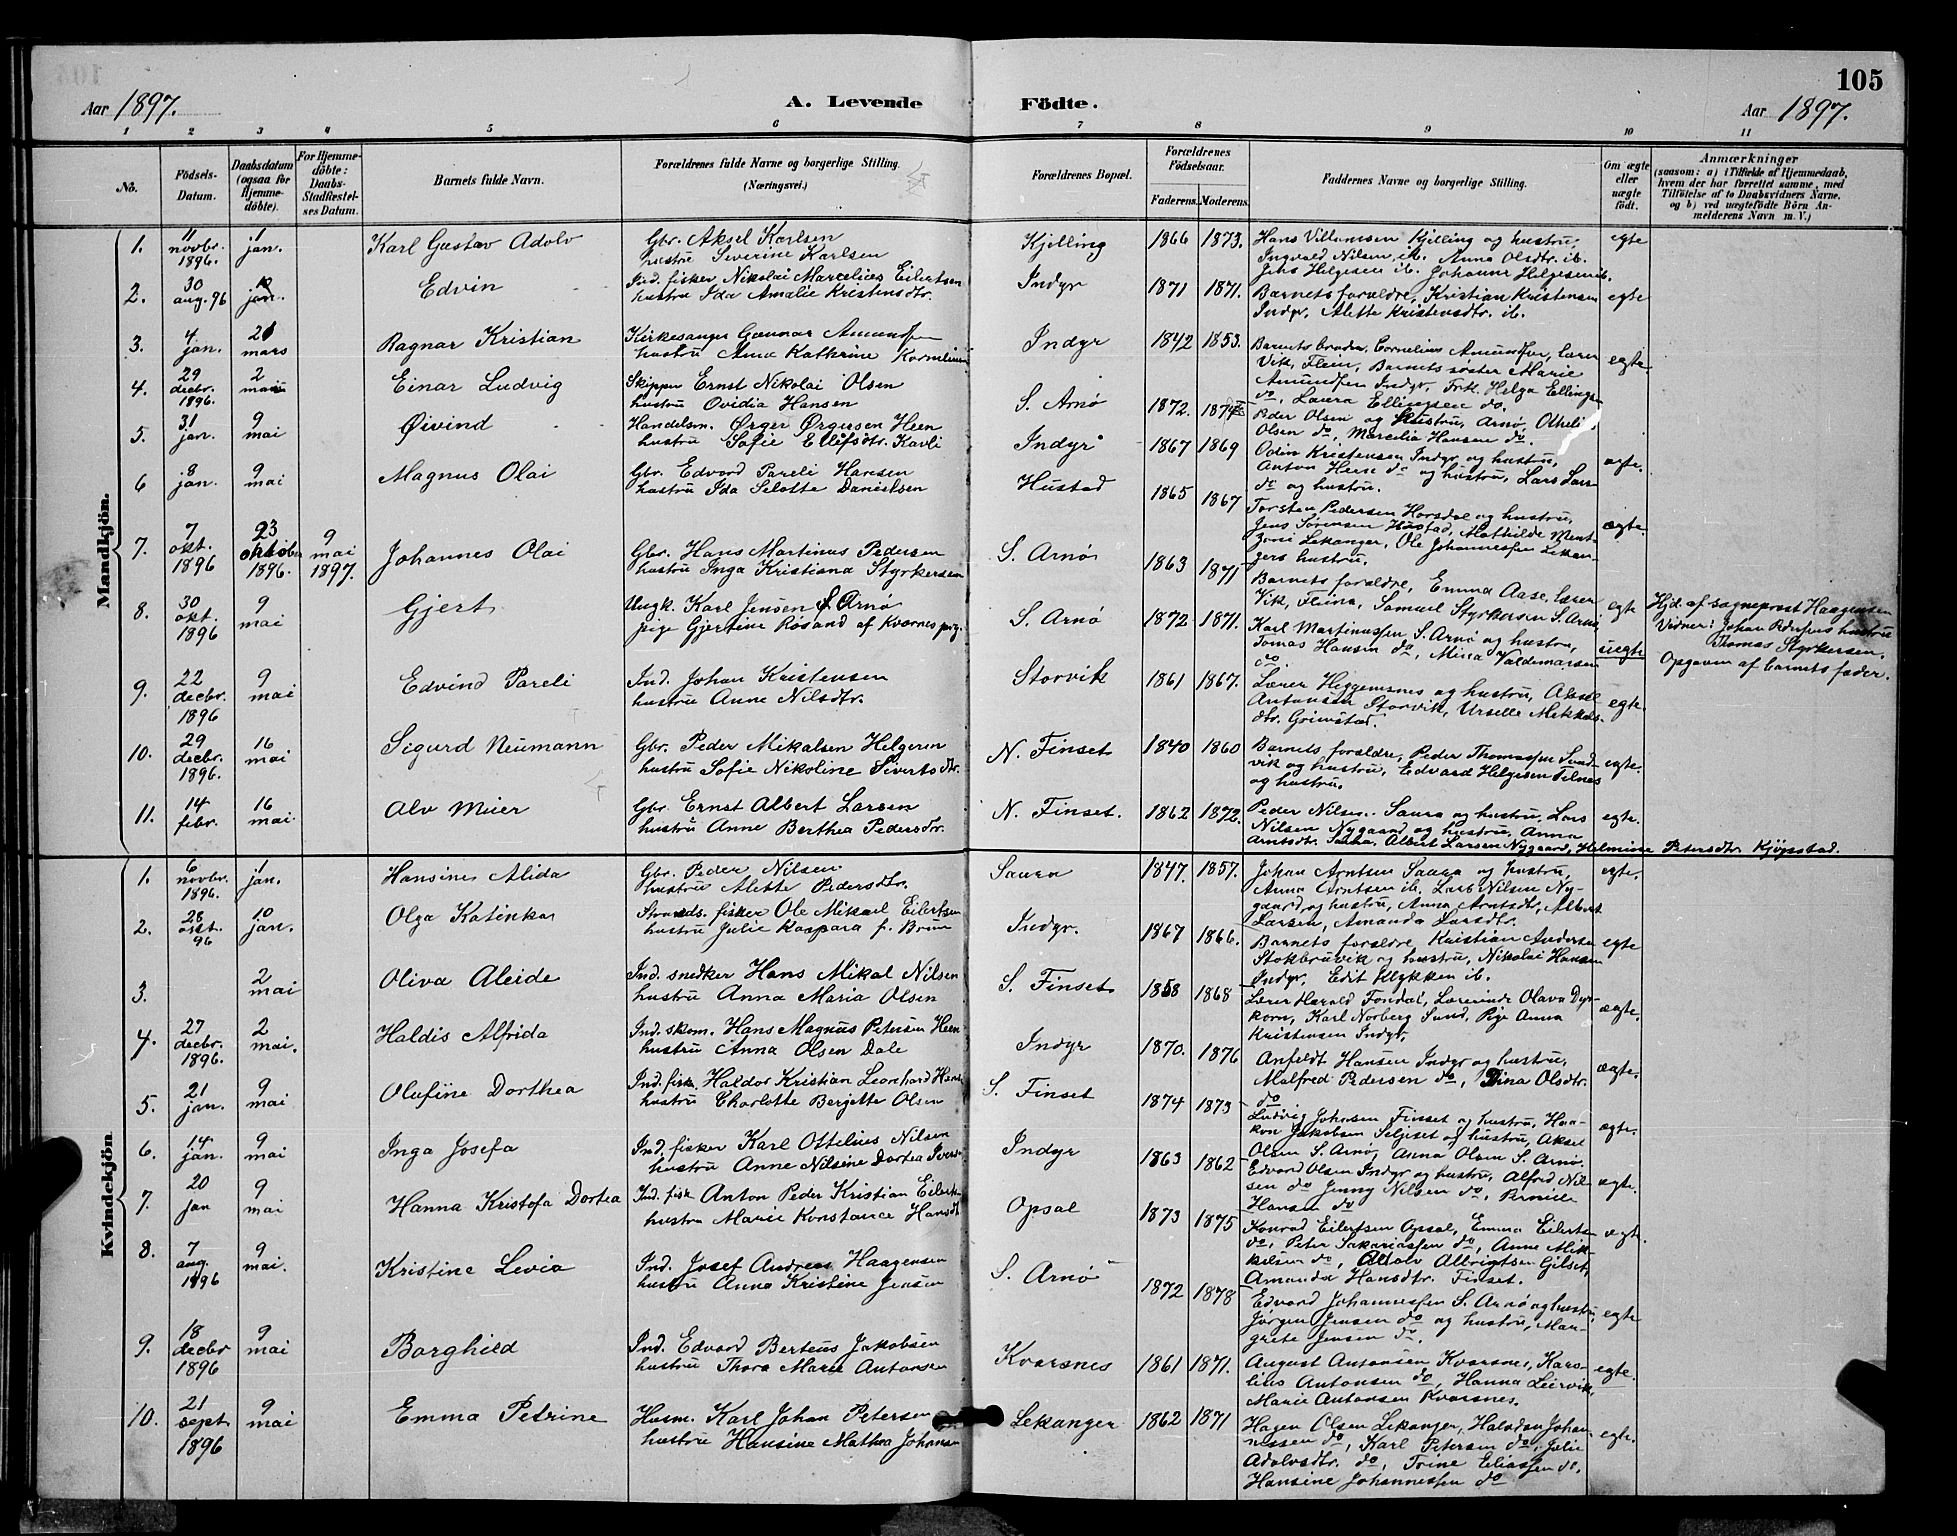 105
Aar 1897.
A. Levende Födte.
Aar 1897.
1 2 3 4 5 6 7 8 9 10 11
No.
Födsels-Datum.
Daabsdatum (ogsaa for Hjemme-döbte).
For Hjemme-döbte: Daabs-Stadfæstel-ses Datum.
Barnets fulde Navn.
Forældrenes fulde Navne og borgerlige Stilling.
(Næringsvei.)
Forældrenes Bopæl.
Forældrenes Födselsaar.
Faderens. Moderens.
Faddernes Navne og borgerlige Stilling.
Om ægte eller uægte födt.
Anmærkninger
(saasom: a) i Tilfælde af Hjemmedaab,
hvem der har forrettet samme, med
Tilföielse af to Daabsvidners Navne.
og b) ved uægtefödte Börn An-
melderens Navn m. V.)
Mandkjön.
1. 11 novbr. 1896. 1 jan. Karl Gustav Adolv
Gbr. Aksel Karlsen
hustru Severine Karlsen
Kjelling 1866 1873.
Hans Villumsen Kjelling og hustru,
Ingvald Nilsen ib. Anna Olsdtr. ib.
Jens Helgesen ib. Johanne Helgesen ib.
egte
2. 30 aug. 96 jan. Edvin
Ind. fisker Nikolai Marcelius Eilertsen
hustru Ida Amalie Kristensdtr.
Indyr 1871 1871.
Barnets forældre, Kristian Kristensen
Indyr, Alette Kristensdtr. ib.
egte
3. 4 jan. mars Ragnar Kristian
Kirkesanger Gunnar Amundsen
hustru Anna Kathrine
Indyr 1842 1853.
Barnets broder, Cornelius Amundsen, lærer
Vik, Flein, Barnets søster Marie
Amundsen Indyr, Frk. Helga Ellingsen
do, Laura Ellingsen do.
egte
4. 29 decbr. 1896. 2 Einar Ludvig
Skipper Ernst Nikolai Olsen
hustru Ovidia Hansen
S. Arnø 1872.
Peder Olsen og hustru, Arnø,
Olsen do, Marcelia Hansen do.
5. 31 jan. 9 mai Øivind
Handelsm. Ørger Ørgersen Heen
hustru Sofie Ellefsdtr. Kavli
Indyr 1867 1869
Odin Kristensen Indyr og hustru,
Anton Heen do og hustru, Lars
do og hustru.
egte.
6 8 jan. 9 mai Magnus Olai
Gbr. Edvard Pareli Hansen
hustru Ida Selotte Danielsen
Hustad 1865 1867
Torsten Pedersen Horsdal og hustru,
Jens Sørensen Hustad, Mathilde Ment-
zoni Lekanger, Ole Johannessen Lekan-
gers hustru.
ægte
7. 7 okt. 1896 23 oktober 1896. 9 mai 1897. Johannes Olai
Gbr. Hans Martinus Pedersen
hustru Inga Kristiana Styrkersen
S. Arnø 1863 1871
Barnets forældre, Emma Aase, lærer
Vik, Fleina, Samuel Styrkersen S. Arnø
egte
Hjd. af sogneprest Haagensen
Vidner: Johan hustru
Thomas Styrkersen.
8. 30 okt. 1896 9 mai Gjert
Ungk. Karl Jensen S. Arnø
pige Gjertine Røsand af Kvernes prg.
S. Arnø 1872 1871.
Karl Martinussen S. Arnø og hustru,
Tomas Hansen do, Mina Valdemarsen
do.
uegte
Opgaven af barnets fader.
9. 22 decbr. 1896 9 mai Edvind Pareli
Ind. Johan Kristensen
hustru Anne Nilsdtr.
Storvik 1861 1867.
Lærer Heggemsnes og hustru, Aksel
Antonsen Storvik, Urselle Mikkels-
dtr. Grimstad.
egte.
10. 29 decbr. 1896. 16 mai Sigurd Neumann
Gbr. Peder Mikalsen Helgesen
hustru Sofie Nikoline Sivertsdtr.
N. Finset 1840 1860
Barnets forældre, Peder Thomassen Sund-
vik og hustru, Edvard Helgesen Selnes
og hustru.
egte.
11. 14 febr. 16 mai. Alv Meier
Gbr. Ernst Albert Larsen
hustru Anne Berthea Pedersdtr.
N. Finset. 1862 1872.
Peder Nilsen Saura og hustru, Lars
Nilsen Nygaard og hustru, Anna
Arntsdtr. Saura, Albert Larsen Nygaard, Helmine Petersdtr. Kjøpstad.
egte.
Kvindekjön.
1. 6 novbr. 1896. 1 jan. Hansine Alida
Gbr. Peder Nilsen
hustru Alette Pedersdtr.
Saura 1847. 1857.
Johan Arntsen Saura og hustru,
Anna Arntsen ib. Lars Nilsen Ny-
gaard og hustru, Anna Arntsdtr, Albert
Larsen, Amanda Larsdtr.
egte.
2. 26 okt. 96 10 jan. Olga Katinka
Strands. fisker Ole Mikael Eilertsen
hustru Julie Kaspara f. Brun
Indyr. 1867 1866.
Barnets forældre, Kristian Andersen
Stokbruvik og hustru, Nikolai Hansen
Indyr, Edit ib.
egte
3. 2 mai Oliva Aleide
Ind. snedker Hans Mikal Nilsen
hustru Anna Maria Olsen
S. Finset 1858 1868
Lærer Harald Fondal, Lærerinde Olava Dyr-
korn, Karl Norberg Sund, Pige Anna
Kristensen Indyr.
ægte.
4. 27 decbr. 1896. 2 mai. Haldis Alfrida
Ind. skom. Hans Magnus Petersen Heen
hustru Anna Olsen Dale
Indyr 1870. 1876
Anfeldt Hansen Indyr og hustru,
Malfred Pedersen do, Dina Olsdtr.
do
ægte.
5. 21 jan. 9 mai Olufine Dorthea
Ind. fisk. Haldor Kristian Leonhard
hustru Charlotte Bergette Olsen
S. Finset 1874 1873
Ludvig Johansen Finset og hustru, Haa-
kon Jakobsen Selsset og hustru, Aksel
Olsen S. Arnø, Anna Olsen S. Arnø.
ægte.
6. 14 jan. 9 mai Inga Josefa
Ind. fisker Karl Ottelius Nilsen
hustru Anne Nilsine Dortea
Indyr 1863 1862
Edvard Olsen Indyr og hustru, Alfred Nil-
sen do Jenny Nilsen do,
Hansen do
ægte.
7. 20 jan 9 mai Hanna Kristofa Dortea
Ind. fisk Anton Peder Kristian
hustru Marie Konstance Hansdtr
Opsal 1873 1875
Konrad Eilertsen Opsal, Emma Eilertsen
do, Peter Sakariassen do, Anne Mik-
kelsen do, Adolv Albrigtsen Gilset,
Amanda Hansdtr. Finset.
ægte.
8. 7 aug. 1896 9 mai. Kristine Levia
Ind. Josef Andreas Haagensen
hustru Anna Kristine Jensen
S. Arnø 1872 1878
Edvard Johannessen S. Arnø og hustru,
Jørgen Jensen do og hustru, Mar-
grete Jensen do.
egte
9. 18 decbr 1896 9 mai Borghild
Ind. Edvard Berteus Jakobsen
hustru Thora Marie Antonsen
Kvarsnes 1861 1871.
August Antonsen Kvarsnes, Kars-
lius Antonsen do, Hanna Leirvik,
Marie Antonsen Kvarsnes.
egte.
10. 21 sept 1896 9 mai Emma Petrine
Husm. Karl Johan Petersen
hustru Hansine Mathea Johansen
Lekanger 1862 1871
Hagen Olsen Lekanger, Halvdan Johan-
nessen do, Karl Petersen do, Julie
Adolvsdtr. do, Trine Eliassen do,
Hansine Johannessen do
egte.